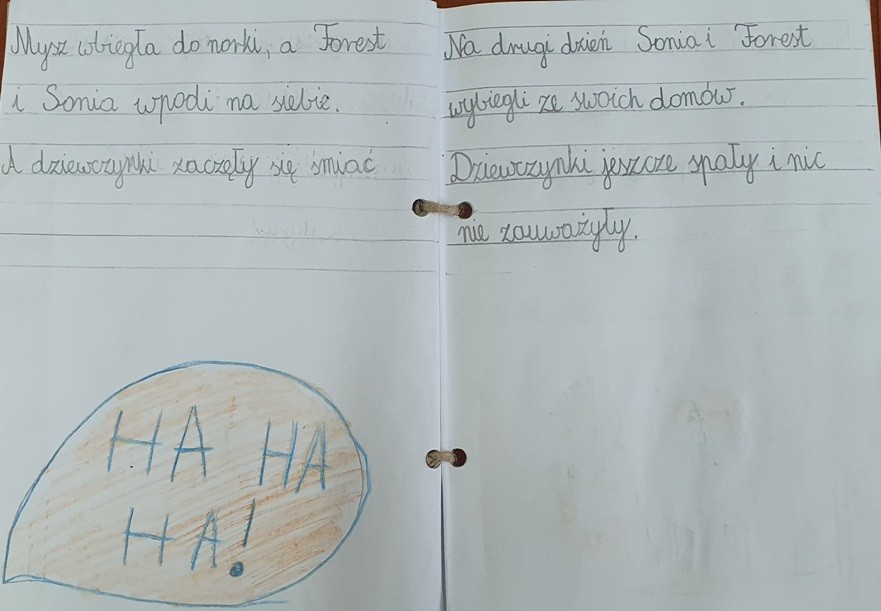 Mysz wbiegła do norki, a Forest
i Sonia wpodi na siebie.
A dziewczynki zaczęły się śmiać
HA HA
HA!
Na drugi dzień Sonia i Forest
wybiegli ze swoich domów.
Dziewczynki jeszcze spały i nic
nie zauważyły.